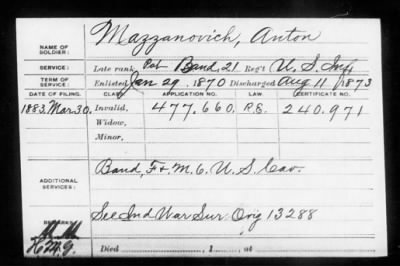 Mazzanovich, Anton
NAME OF SOLDIER:
SERVICE: Late rank Pvt Band, 21 Reg't U. S. Inf.
TERM OF SERVICE: Enlisted Jan 29, 1870 Discharged Aug 11, 1873
DATE OF FILING. CLASS. APPLICATION NO. LAW. CERTIFICATE NO.
1883. Mar. 30. Invalid, 477.660. R.S. 240.971
Widow,
Minor,
ADDITIONAL SERVICES:
Band, F & M. 6. U. S. Cav.
See Ind War Sur Orig 13288
REMARKS:
Died , 1 , at